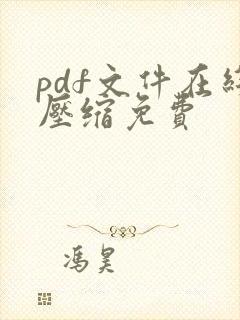 pdf文件在线
壓缩免費
冯昊